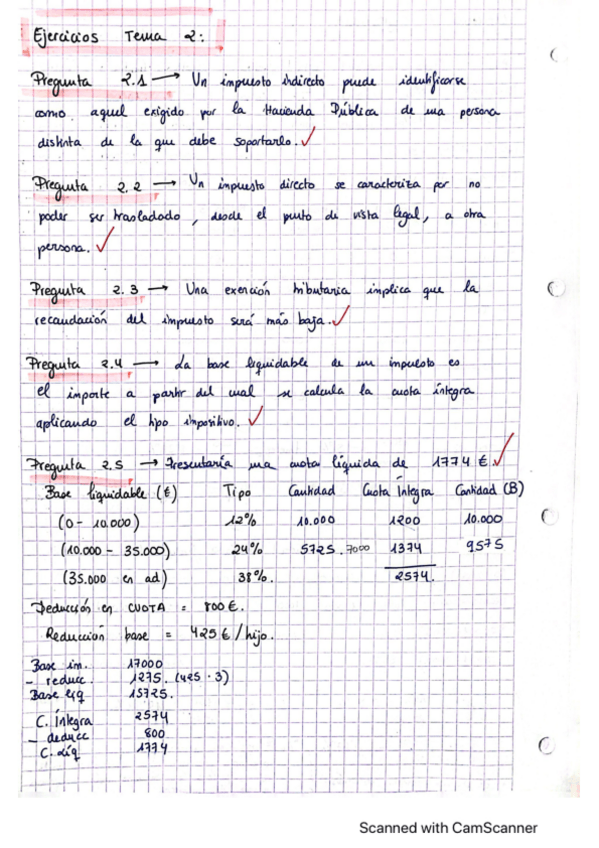 Ejercicios Tema 2:
Pregunta 2.1 → Un impuesto indirecto puede identificarse
como aquel exigido por la Hacienda Pública de una persona
distinta de la que debe soportarlo. ✓
Pregunta 2.2 → Un impuesto directo se caracteriza por no
poder ser trasladado, desde el punto de vista legal, a otra
persona. ✓
Pregunta 2.3 → Una exención tributaria implica que la
recaudación del impuesto será más baja. ✓
Pregunta 2.4 → La base liquidable de un impuesto es
el importe a partir del cual se calcula la cuota íntegra
aplicando el tipo impositivo. ✓
Pregunta 2.5 → Presentaría una cuota líquida de 1774 €. ✓
Base liquidable (€) Tipo Cantidad Cuota Íntegra Cantidad (B)
(0 - 10.000) 12% 10.000 1200 10.000
(10.000 - 35.000) 24% 5725.7000 1374 9575
(35.000 en ad) 38%. 2574.
Deducción en CUOTA = 800 €.
Reducción base = 425 €/hijo.
Base im. 17000
- reducc. 1275. (425 · 3)
Base liq 15725.
C. Íntegra 2574
- deducc 800
C. Líq 1774
Scanned with CamScanner